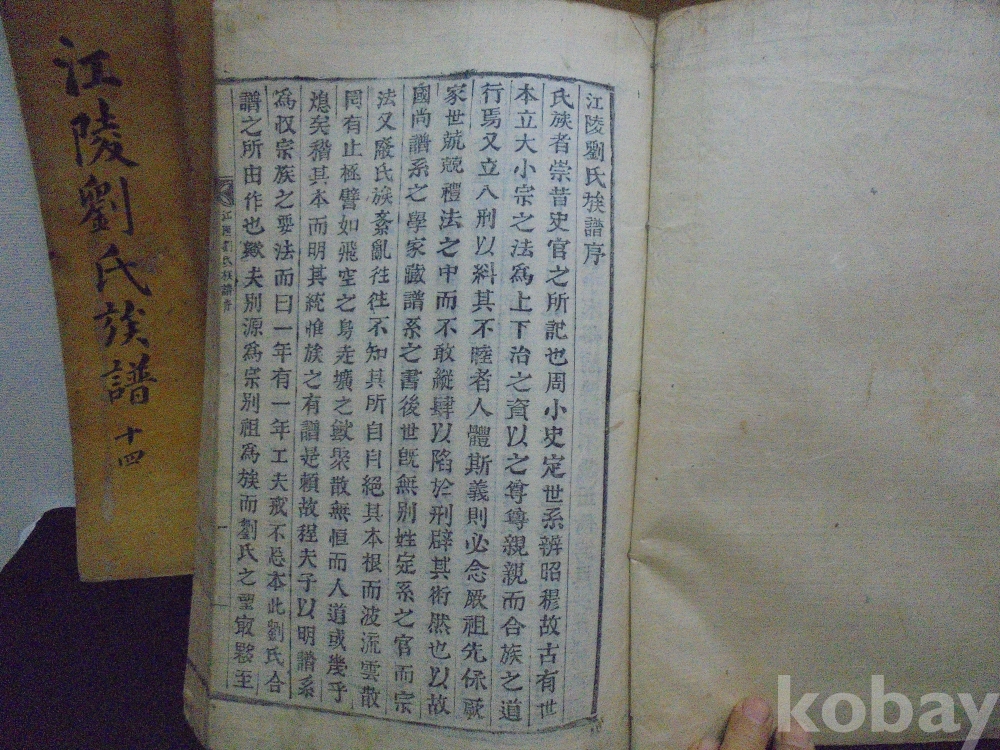 江陵劉氏族譜序
氏族者崇昔史官之所記也周小史定世系辨昭穆故古有世
本立大小宗之法為上下治之資以之尊尊親親而合族之道
行焉又立八刑以糾其不睦者人體斯義則必念厥祖先保厥
家世兢兢禮法之中而不敢縱肆以陷於刑辟其術然也以故
國尚譜系之學家藏譜系之書後世旣無別姓定系之官而宗
法又廢氏族紊亂往往不知其所自自絕其本根而波流雲散
罔有止極譬如飛空之鳥走壙之獸聚散無恒而人道或幾乎
熄矣稽其本而明其統惟族之有譜是賴故程夫子以明譜系
為収宗族之要法而曰一年有一年工夫戒不忘本此劉氏合
譜之所由作也歟夫別源為宗別祖為族而劉氏之望㝡夥至
江陵劉氏族譜序
江陵劉氏族譜 十四
kobay